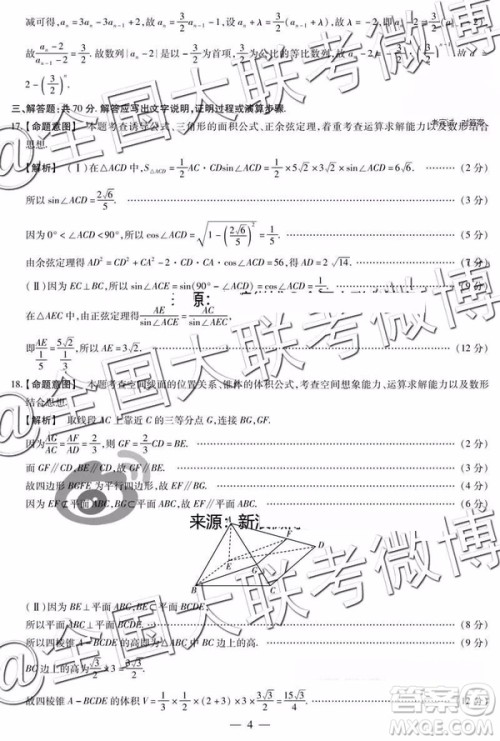 减可得,aₙ=3aₙ-3aₙ₋₁+2,故aₙ=3/2 aₙ₋₁-1,设aₙ+λ=3/2(aₙ₋₁+λ),故aₙ=3/2 aₙ₋₁+λ/2,故λ=-2,即aₙ-2=3/2(aₙ₋₁-2),
故 (aₙ-2)/(aₙ₋₁-2)=3/2.故数列{aₙ-2}是以-3/2为首项,3/2为公比的等比数列,故
2-(3/2)ⁿ.
三、解答题:共70分.解答应写出文字说明,证明过程或演算步骤.
17.【命题意图】本题考查诱导公式,三角形的面积公式、正余弦定理,着重考查运算求解能力以及数形结合
思想.
【解析】(Ⅰ)在△ACD中,S△ACD=1/2 AC·CDsin∠ACD=1/2×5√2×3√2×sin∠ACD=6√6.(2分)
所以sin∠ACD=2√6/5.(3分)
因为0°<∠ACD<90°,所以cos∠ACD=√(1-(2√6/5)²)=1/5.(5分)
由余弦定理得AD²=CD²+CA²-2·CD·CA·cos∠ACD=56,得AD=2√14.(7分)
(Ⅱ)因为EC⊥BC,所以sin∠ACE=sin(90°-∠ACD)=cos∠ACD=1/5.
在△AEC中,由正弦定理得AE/sin∠ACE=
即AE/(1/5)=5√2/,所以AE=(12分)
18.【命题意图】本题考查空间线面的位置关系、锥体的体积公式,考查空间想象能力,运算求解能力以及数形
结合思想.
【解析】取线段AC上靠近C的三等分点G,连接BG,GF.
因为AG/AC=AF/AD=2/3,则GF=2/3 CD=BE.(2分)
而GF∥CD,BE∥CD,故GF∥BE.(4分)
故四边形BGFE为平行四边形,故EF∥BG.
因为EF⊄平面ABC,BG⊂平面ABC,故EF∥平面ABC.(6分)
来源:新浪微博
A
F
E
D
G
B
C
(Ⅱ)因为BE⊥平面ABC,BE⊂平面BCDE,(8分)
所以平面ABC⊥平面BCDE.
所以四棱锥A-BCDE的高即为△ABC中BC边上的高.(9分)
BC边上的高为
故四棱锥A-BCDE的体积V=1/3×1/2×(2+3)×3×3√3/2=15√3/4.(12分)
— 4 —
@全国大联考微博
答案圈
MXQE.COM